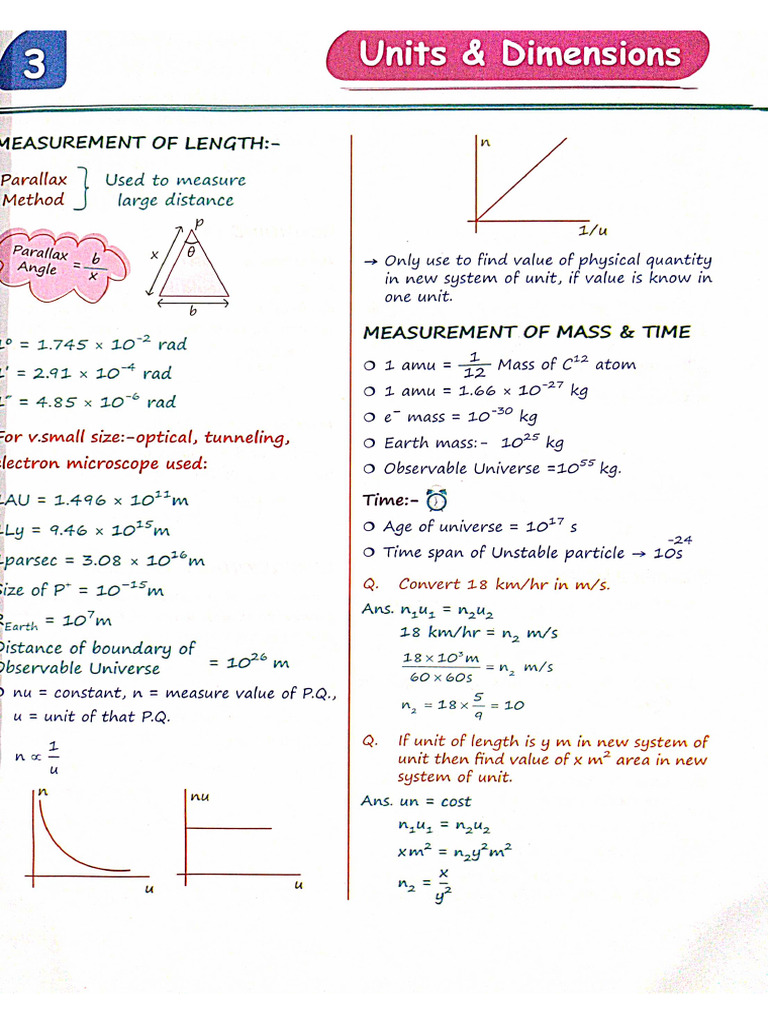 3
Units & Dimensions
MEASUREMENT OF LENGTH:-
Parallax Method } Used to measure large distance
Parallax Angle = b/x
p
x
θ
b
1° = 1.745 × 10⁻² rad
1' = 2.91 × 10⁻⁴ rad
1″ = 4.85 × 10⁻⁶ rad
For v.small size:-optical, tunneling,
electron microscope used:
1AU = 1.496 × 10¹¹m
1Ly = 9.46 × 10¹⁵m
1parsec = 3.08 × 10¹⁶m
Size of P⁺ = 10⁻¹⁵m
R_Earth = 10⁷m
Distance of boundary of
Observable Universe = 10²⁶ m
nu = constant, n = measure value of P.Q.,
u = unit of that P.Q.
n ∝ 1/u
n
u
nu
u
n
1/u
→ Only use to find value of physical quantity
in new system of unit, if value is know in
one unit.
MEASUREMENT OF MASS & TIME
1 amu = 1/12 Mass of C¹² atom
1 amu = 1.66 × 10⁻²⁷ kg
e⁻ mass = 10⁻³⁰ kg
Earth mass:- 10²⁵ kg
Observable Universe =10⁵⁵ kg.
Time:-
Age of universe = 10¹⁷ s
Time span of Unstable particle → 10s⁻²⁴
Q. Convert 18 km/hr in m/s.
Ans. n₁u₁ = n₂u₂
18 km/hr = n₂ m/s
18 × 10³m / 60 × 60s = n₂ m/s
n₂ = 18 × 5/9 = 10
Q. If unit of length is y m in new system of
unit then find value of x m² area in new
system of unit.
Ans. un = cost
n₁u₁ = n₂u₂
xm² = n₂y²m²
n₂ = x/y²